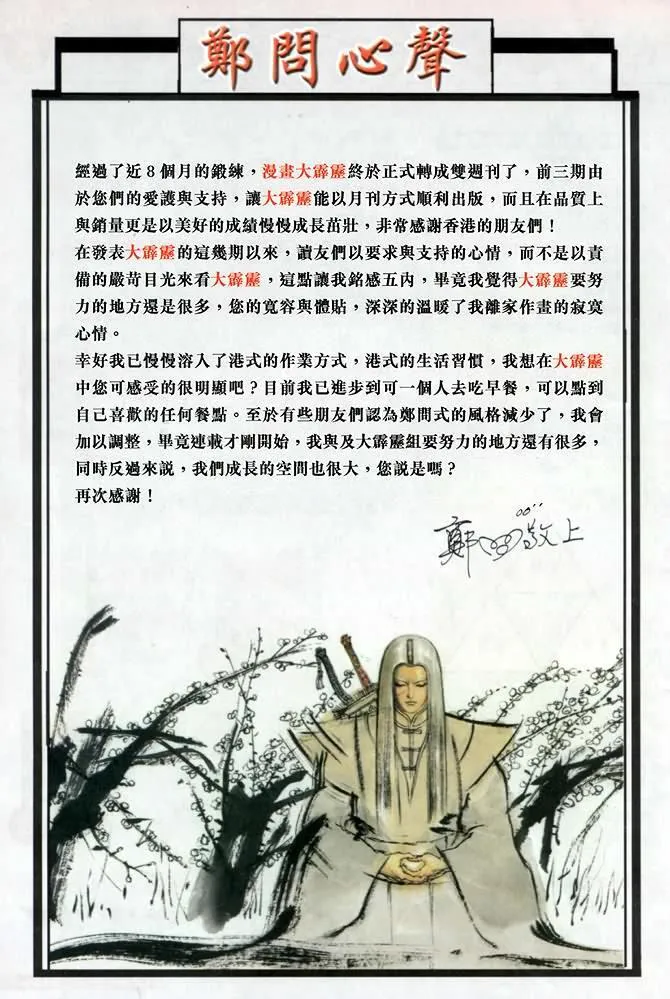 鄭問心聲
經過了近8個月的鍛練，漫畫大霹靂終於正式轉成雙週刊了，前三期由
於您們的愛護與支持，讓大霹靂能以月刊方式順利出版，而且在品質上
與銷量更是以美好的成績慢慢成長茁壯，非常感謝香港的朋友們！
在發表大霹靂的這幾期以來，讀友們以要求與支持的心情，而不是以責
備的嚴苛目光來看大霹靂，這點讓我銘感五內，畢竟我覺得大霹靂要努
力的地方還是很多，您的寬容與體貼，深深的溫暖了我離家作畫的寂寞
心情。
幸好我已慢慢溶入了港式的作業方式，港式的生活習慣，我想在大霹靂
中您可感受的很明顯吧？目前我已進步到可一個人去吃早餐，可以點到
自己喜歡的任何餐點。至於有些朋友們認為鄭問式的風格減少了，我會
加以調整，畢竟連載才剛開始，我與及大霹靂組要努力的地方還有很多，
同時反過來説，我們成長的空間也很大，您説是嗎？
再次感謝！
鄭問敬上